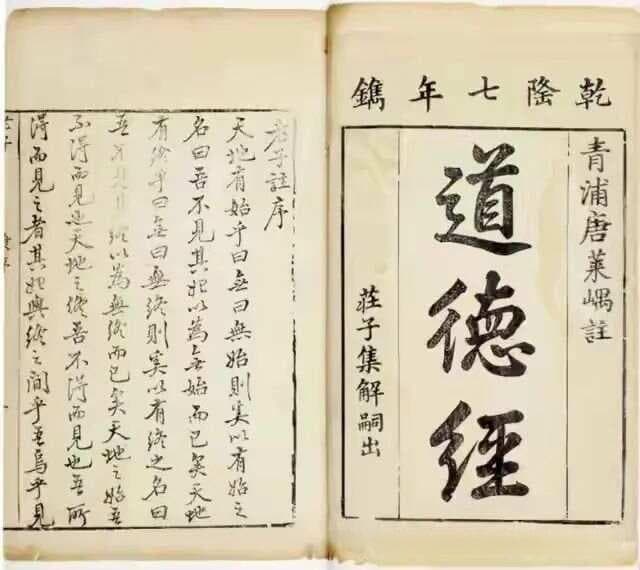 乾隆七年鐫
青浦唐萊嵎註
道德經
莊子集解嗣出
老子註序
天地有始乎曰無曰無始則奚以有始之
名曰吾不見其始以為無始而已矣天地
有終乎曰無曰無終則奚以有終之名曰
吾不見其終以為無終而已矣天地之始吾
不得而見也天地之終吾不得而見也吾所
得而見之者其始與終之間乎吾烏乎見